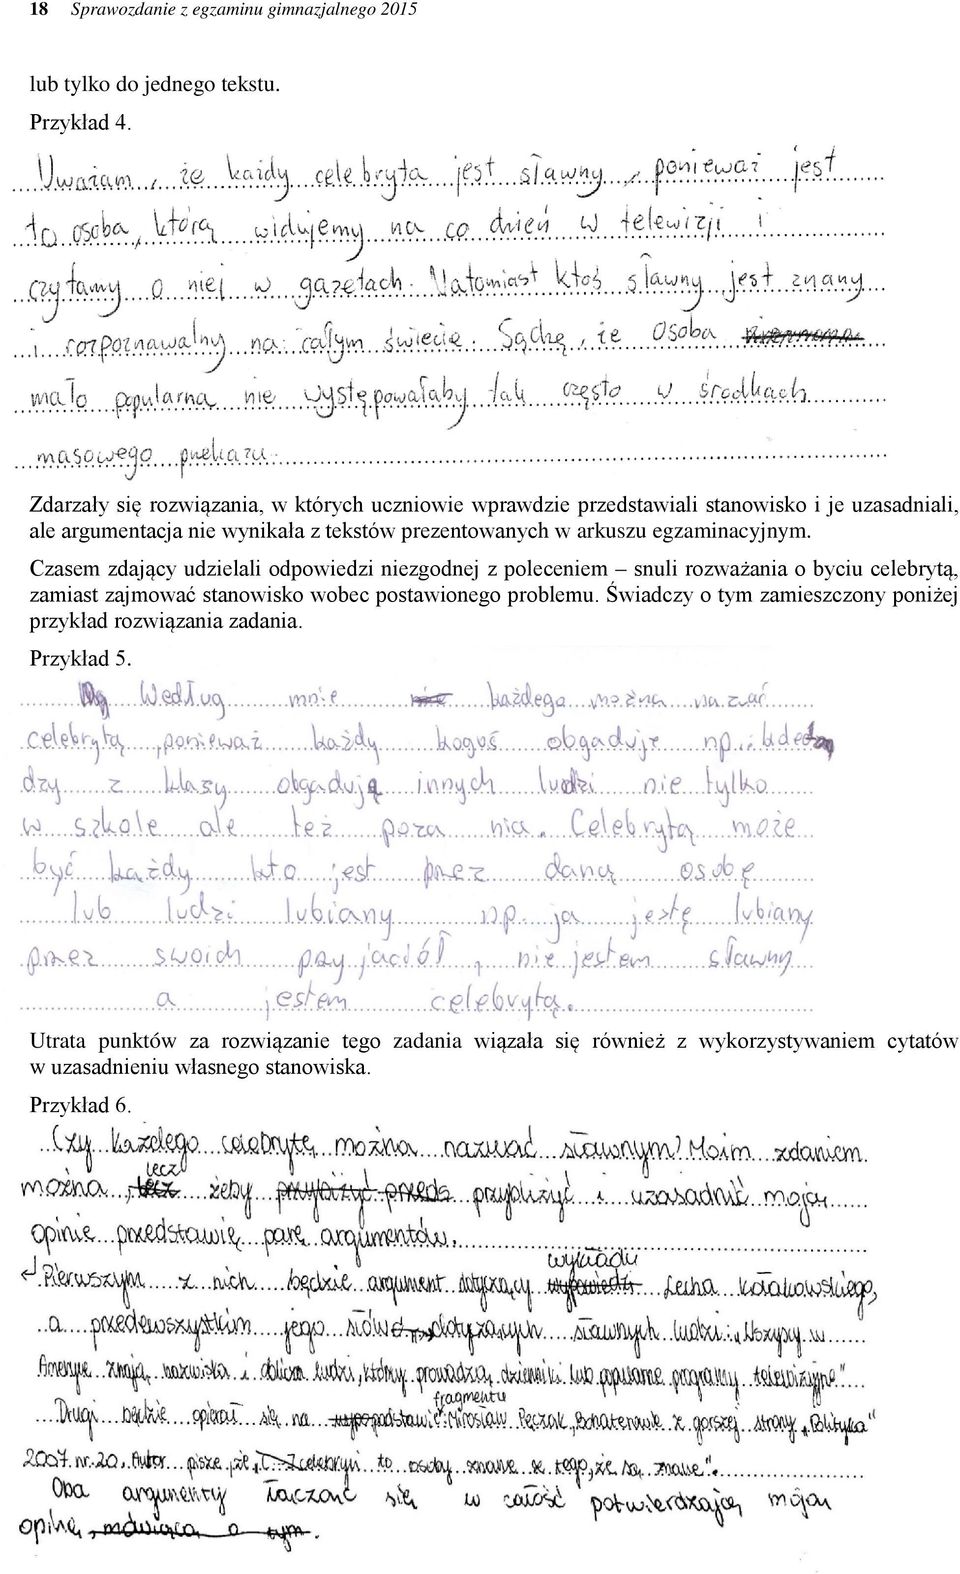 18 Sprawozdanie z egzaminu gimnazjalnego 2015
lub tylko do jednego tekstu.
Przykład 4.
Uważam, że każdy celebryta jest sławny, ponieważ jest
to osoba, którą widujemy na co dzień w telewizji i
czytamy o niej w gazetach. Natomiast ktoś sławny jest znany
i rozpoznawalny na całym świecie. Sądzę, że osoba
mało popularna nie występowałaby tak często w środkach
masowego przekazu.
Zdarzały się rozwiązania, w których uczniowie wprawdzie przedstawiali stanowisko i je uzasadniali,
ale argumentacja nie wynikała z tekstów prezentowanych w arkuszu egzaminacyjnym.
Czasem zdający udzielali odpowiedzi niezgodnej z poleceniem – snuli rozważania o byciu celebrytą,
zamiast zajmować stanowisko wobec postawionego problemu. Świadczy o tym zamieszczony poniżej
przykład rozwiązania zadania.
Przykład 5.
Według mnie nie każdego można nazwać
celebrytą, ponieważ każdy kogoś obgaduje np.:
dzy z klasy obgadują innych ludzi nie tylko
w szkole ale też poza nia. Celebrytą może
być każdy kto jest przez daną osobę
lub ludzi lubiany np. ja jestę lubiany
przez swoich przyjaciół, nie jestem sławny
a jestem celebrytą.
Utrata punktów za rozwiązanie tego zadania wiązała się również z wykorzystywaniem cytatów
w uzasadnieniu własnego stanowiska.
Przykład 6.
Czy każdego celebrytę można nazwać sławnym? Moim zdaniem
można, lecz żeby przybliżyć i uzasadnić moją
opinię przedstawię parę argumentów.
Pierwszym z nich będzie argument dotyczący wykładu Lecha Kołakowskiego,
a przedewszystkim jego słów dotyczących sławnych ludzi: „Wszyscy w
Ameryce znają nazwiska i oblicza ludzi, którzy prowadzą dzienniki lub popularne programy telewizyjne"
Drugi będzie opierał się na fragmentu Mirosław Pęczak „Bohaterowie z gorszej strony „Polityka"
2007 nr. 20. Autor pisze, że „[...] celebryci to osoby znane z tego, że są znane".
Oba argumenty łączące się w całość potwierdzają moją
opinię, mówiącą o tym.